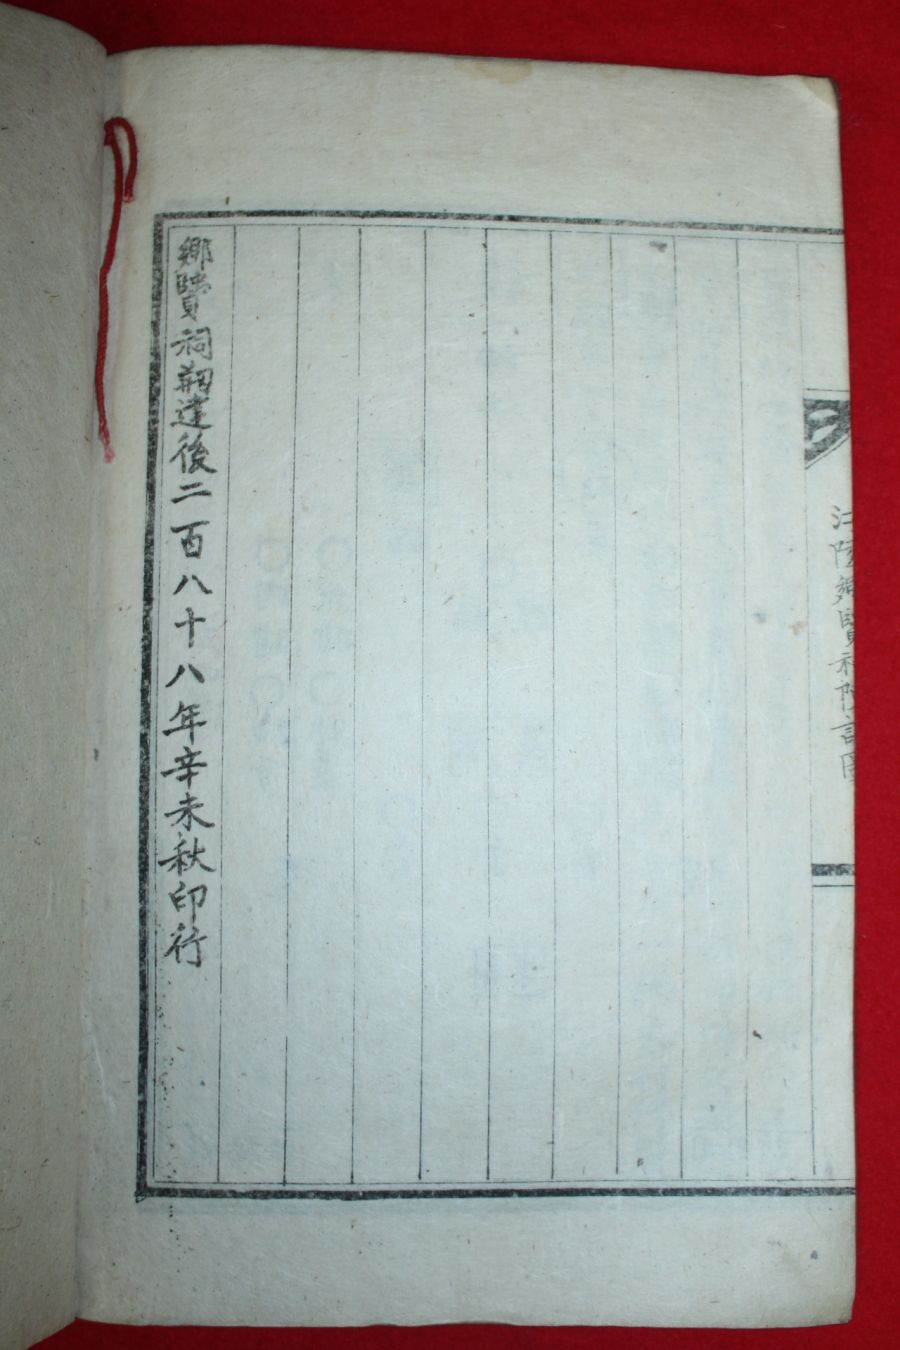 江陵鄕賢祠院記
鄕賢祠剏建後二百八十八年辛未秋印行